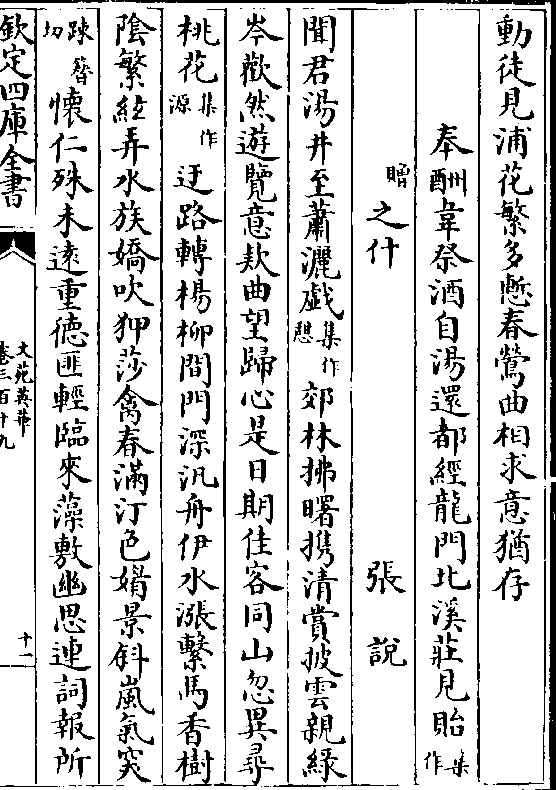 動徒見浦花繁多慙春鶯曲相求意猶存
奉酬韋祭酒自湯還都經龍門北溪莊見貽集作
贈之什 張說
聞君湯井至蕭灑戯集作憩郊林拂曙攜清賞披雲親綠
岑歡然遊覽意欵曲望歸心是日期佳客同山忽異尋
桃花集作源迂路轉楊柳間門深汎舟伊水漲繫馬香樹
陰繁絃弄水族嬌吹狎莎禽春滿汀色媚景斜嵐氣突
踈簪切懷仁殊未遠重徳匪輕臨來藻敷幽思連詞報所
欽定四庫全書
文苑英華
卷三百十九
十一